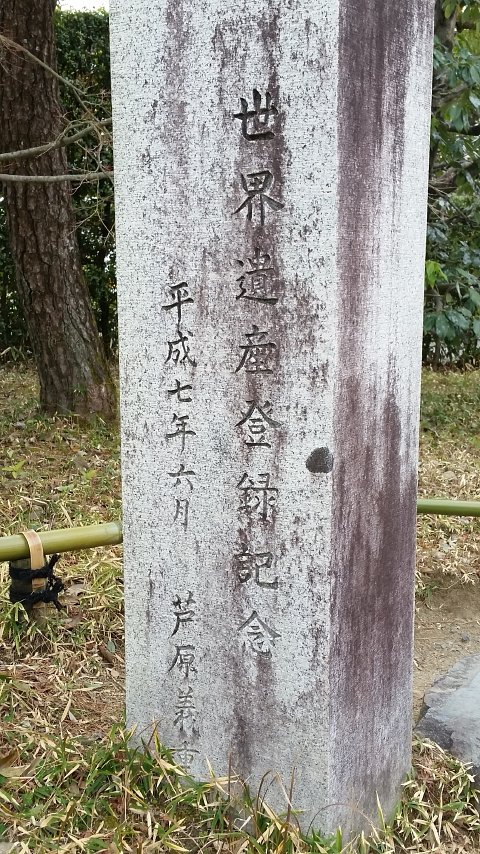 世界遺産登録記念
平成七年六月 芦原義重